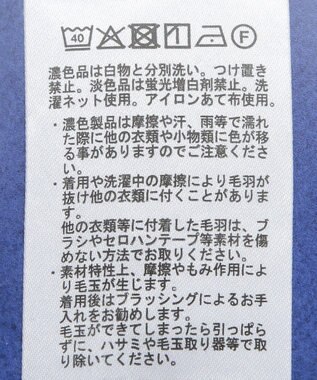 40 F
濃色品は白物と分別洗い。つけ置き
禁止。淡色品は蛍光増白剤禁止。洗
濯ネット使用。アイロンあて布使用。
・濃色製品は摩擦や汗、雨等で濡れ
た際に他の衣類や小物類に色が移
る事がありますのでご注意くださ
い。
・着用や洗濯中の摩擦により毛羽が
抜け他の衣類に付くことがありま
す。
他の衣類等に付着した毛羽は、ブ
ラシやセロハンテープ等素材を傷
めない方法でお取りください。
・素材特性上、摩擦やもみ作用によ
り毛玉が生じます。
着用後はブラッシングによるお手
入れをお勧めします。
毛玉ができてしまったら引っぱら
ずに、ハサミや毛玉取り器等で取
り除いてください。